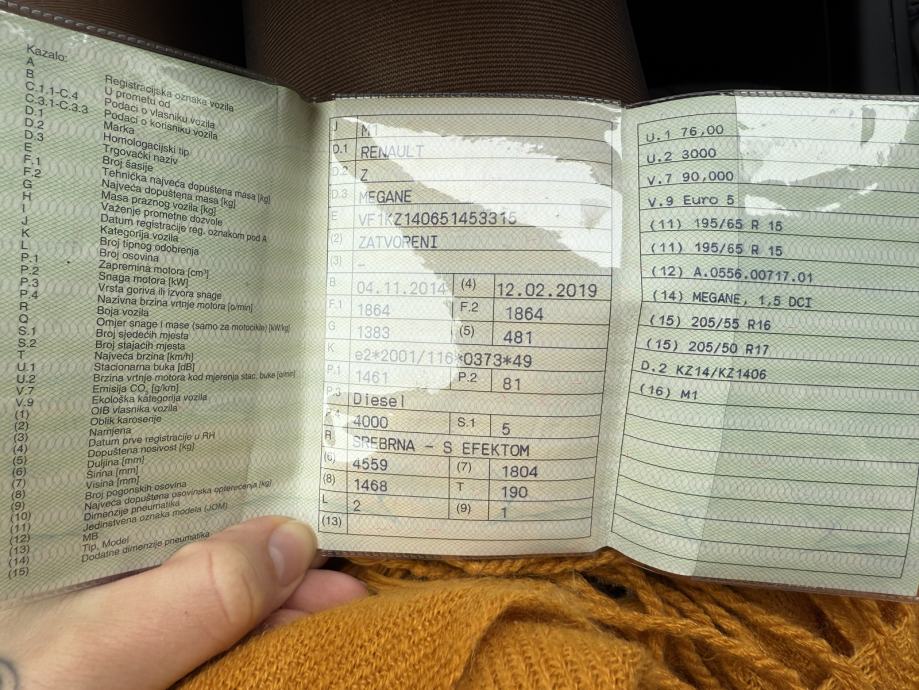 Kazalo:
A Registracijska oznaka vozila
B U prometu od
C.1.1-C.4 Podaci o vlasniku vozila
C.3.1-C.3.3 Podaci o korisniku vozila
D.1 Marka
D.2 Homologacijski tip
D.3 Trgovački naziv
E Broj šasije
F.1 Tehnička najveća dopuštena masa [kg]
F.2 Najveća dopuštena masa [kg]
G Masa praznog vozila [kg]
H Važenje prometne dozvole
I Datum registracije reg. oznakom pod A
J Kategorija vozila
K Broj tipnog odobrenja
L Broj osovina
P.1 Zapremina motora [cm³]
P.2 Snaga motora [kW]
P.3 Vrsta goriva ili izvora snage
P.4 Nazivna brzina vrtnje motora [o/min]
R Boja vozila
Omjer snage i mase (samo za motocikle) [kW/kg]
S.1 Broj sjedećih mjesta
S.2 Broj stajaćih mjesta
T Najveća brzina [km/h]
U.1 Stacionarna buka [dB]
U.2 Brzina vrtnje motora kod mjerenja stac. buke [o/min]
V.7 Emisija CO₂ [g/km]
V.9 Ekološka kategorija vozila
(1) OIB vlasnika vozila
(2) Oblik karoserije
(3) Namjena
(4) Datum prve registracije u RH
(5) Dopuštena nosivost [kg]
(6) Duljina [mm]
(7) Širina [mm]
(8) Visina [mm]
(9) Broj pogonskih osovina
(10) Najveća dopuštena osovinska opterećenja [kg]
(11) Dimenzije pneumatika
(12) Jedinstvena oznaka modela (JOM)
(13) MB
(14) Tip, Model
(15) Dodatne dimenzije pneumatika
J M1
D.1 RENAULT
D.2 Z
D.3 MEGANE
E VF1KZ140651453315
(2) ZATVORENI
(3) –
B 04.11.2014 (4) 12.02.2019
F.1 1864 F.2 1864
G 1383 (5) 481
K e2*2001/116*0373*49
P.1 1461 P.2 81
P.3 Diesel
P.4 4000 S.1 5
R SREBRNA – S EFEKTOM
(6) 4559 (7) 1804
(8) 1468 T 190
L 2 (9) 1
(13)
U.1 76,00
U.2 3000
V.7 90,000
V.9 Euro 5
(11) 195/65 R 15
(11) 195/65 R 15
(12) A.0556.00717.01
(14) MEGANE, 1,5 DCI
(15) 205/55 R16
(15) 205/50 R17
D.2 KZ14/KZ1406
(16) M1